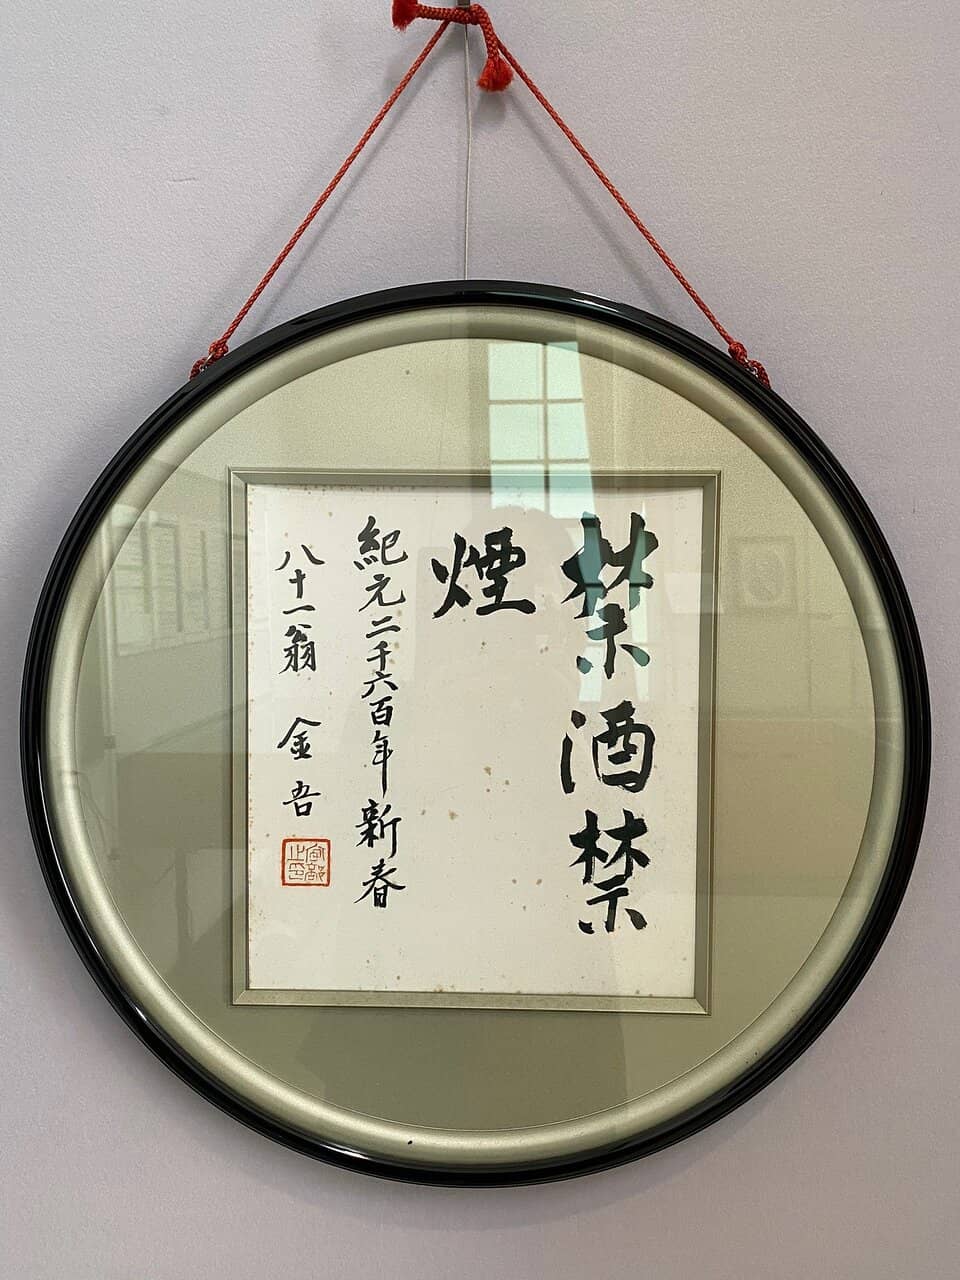 禁酒禁
煙
紀元二千六百年新春
八十一翁 金吾